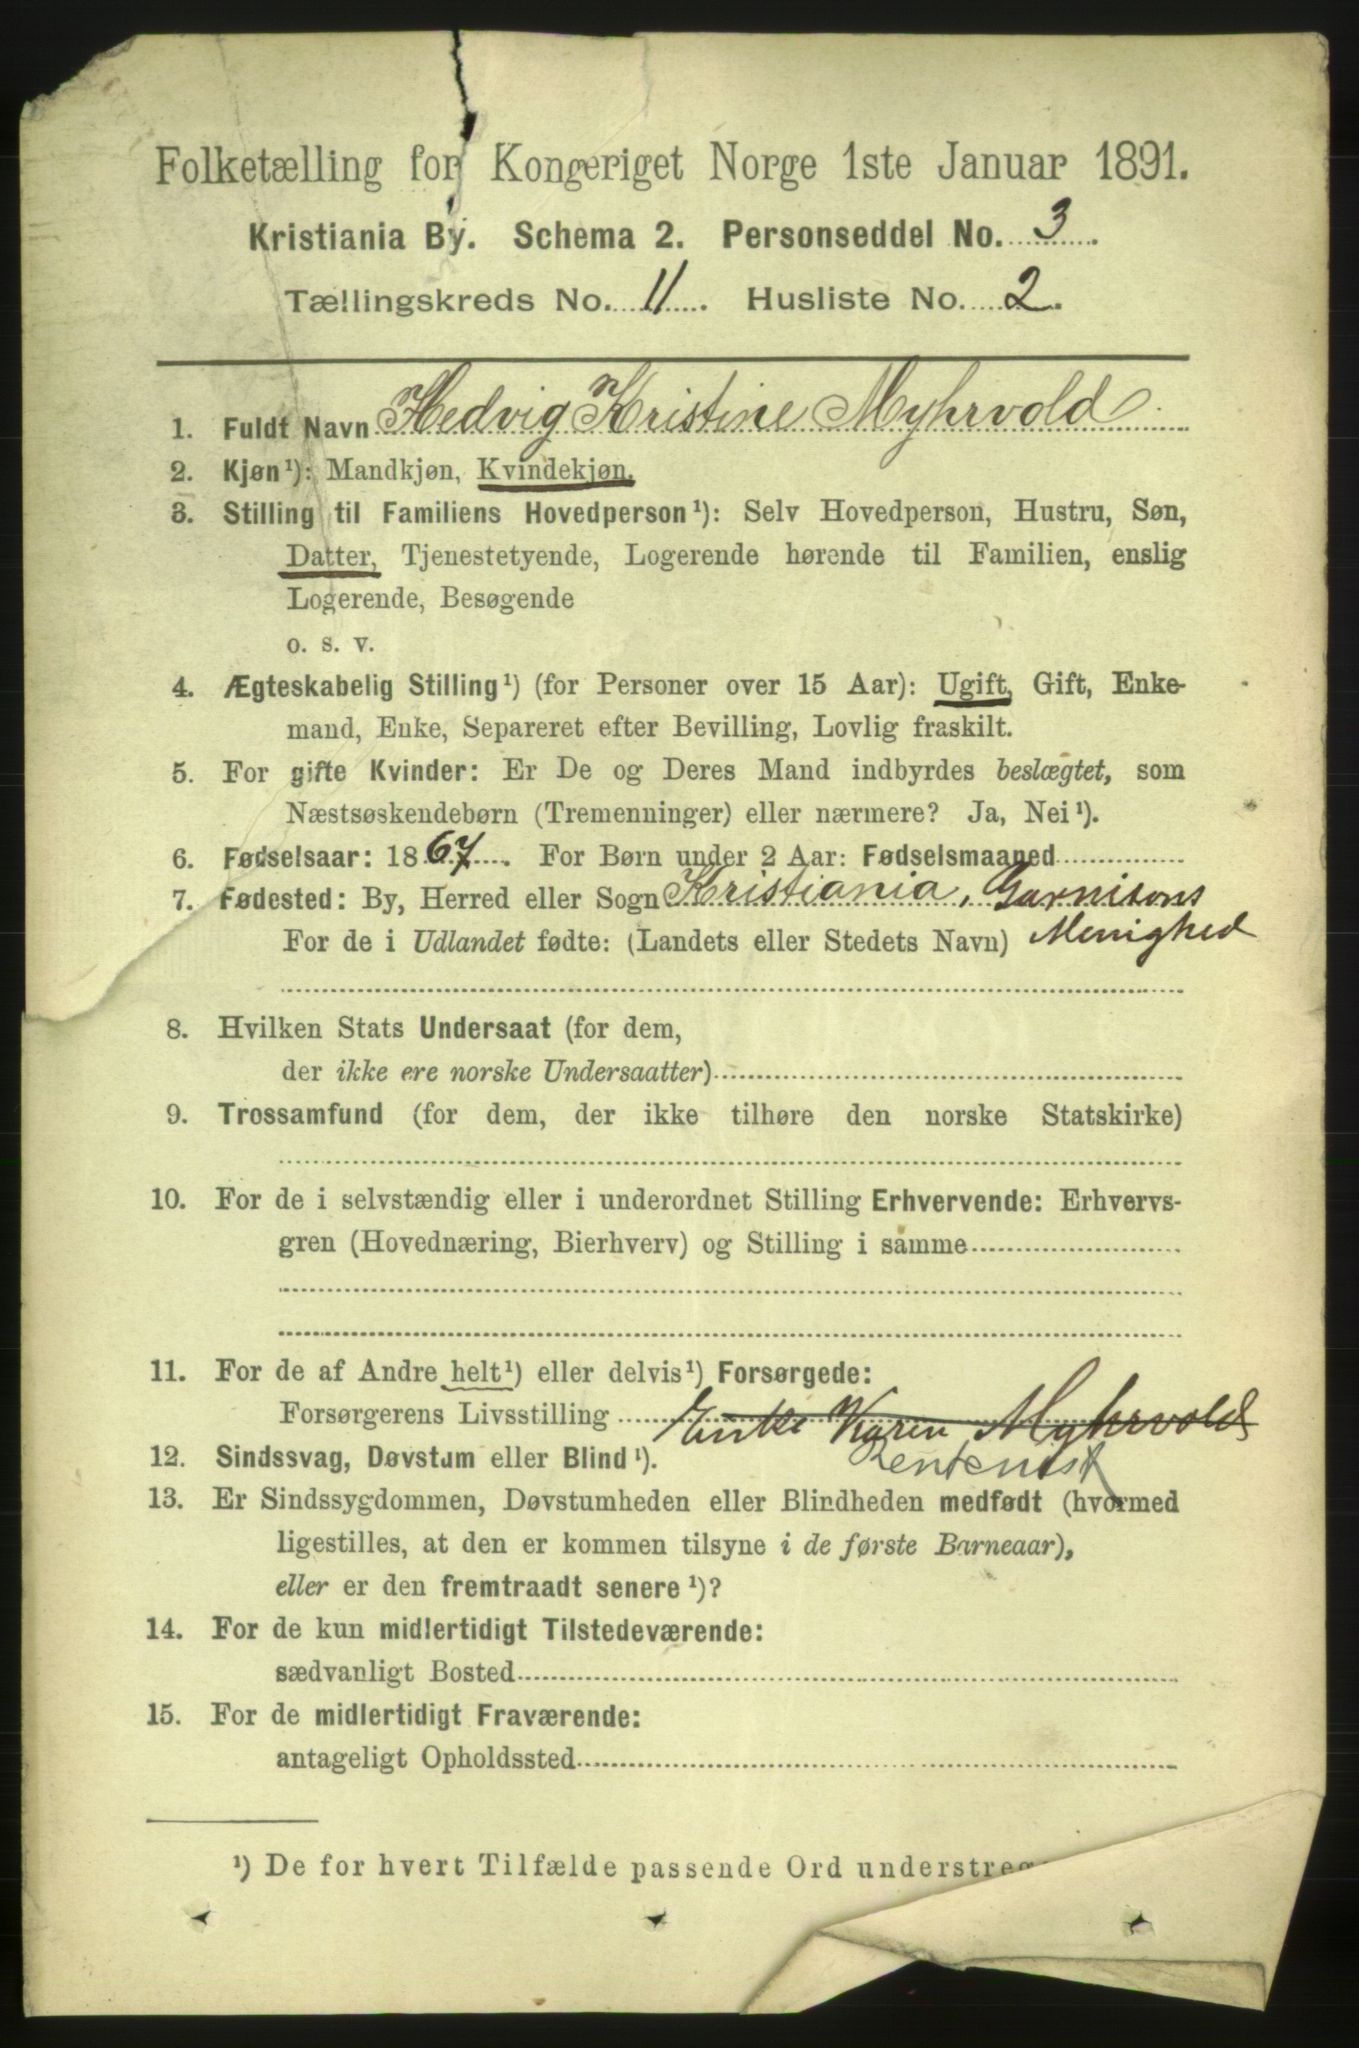 Folketælling for Kongeriget Norge 1ste Januar 1891.
Kristiania By. Schema 2. Personseddel No. 3.
Tællingskreds No. 11. Husliste No. 2.
1. Fuldt Navn Hedvig Kristine Myhrvold.
2. Kjøn¹): Mandkjøn, Kvindekjøn.
3. Stilling til Familiens Hovedperson¹): Selv Hovedperson, Hustru, Søn,
Datter, Tjenestetyende, Logerende hørende til Familien, enslig
Logerende, Besøgende
o. s. v.
4. Ægteskabelig Stilling¹) (for Personer over 15 Aar): Ugift, Gift, Enke-
mand, Enke, Separeret efter Bevilling, Lovlig fraskilt.
5. For gifte Kvinder: Er De og Deres Mand indbyrdes beslægtet, som
Næstsøskendebørn (Tremenninger) eller nærmere? Ja, Nei¹).
6. Fødselsaar: 1867. For Børn under 2 Aar: Fødselsmaaned
7. Fødested: By, Herred eller Sogn Kristiania, Garnisons
For de i Udlandet fødte: (Landets eller Stedets Navn) Menighed
8. Hvilken Stats Undersaat (for dem,
der ikke ere norske Undersaatter)
9. Trossamfund (for dem, der ikke tilhøre den norske Statskirke)
10. For de i selvstændig eller i underordnet Stilling Erhvervende: Erhvervs-
gren (Hovednæring, Bierhverv) og Stilling i samme
11. For de af Andre helt¹) eller delvis¹) Forsørgede:
Forsørgerens Livsstilling Enke Karen Myhrvold
Rentenist
12. Sindssvag, Døvstum eller Blind¹).
13. Er Sindssygdommen, Døvstumheden eller Blindheden medfødt (hvormed
ligestilles, at den er kommen tilsyne i de første Barneaar),
eller er den fremtraadt senere¹)?
14. For de kun midlertidigt Tilstedeværende:
sædvanligt Bosted
15. For de midlertidigt Fraværende:
antageligt Opholdssted
¹) De for hvert Tilfælde passende Ord understreg